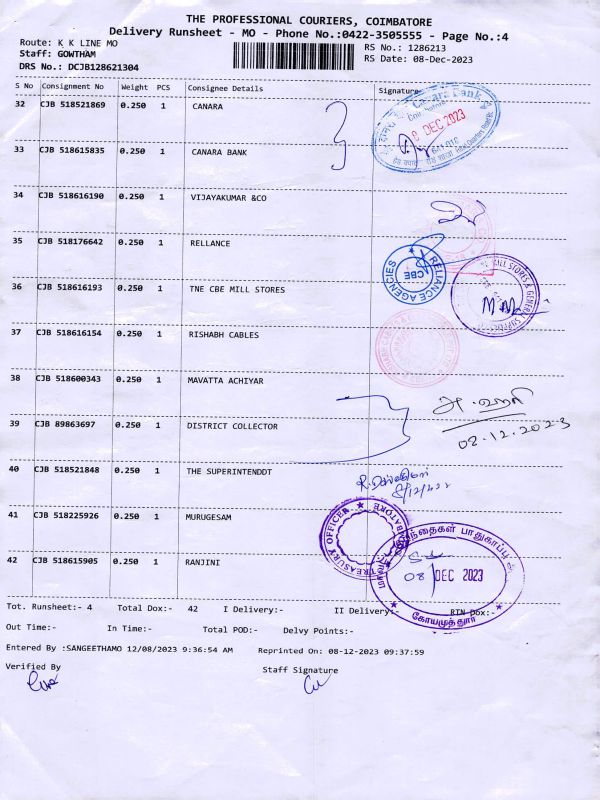 THE PROFESSIONAL COURIERS, COIMBATORE
Delivery Runsheet - MO - Phone No.:0422-3505555 - Page No.:4
Route: K K LINE MO
RS No.: 1286213
Staff: GOWTHAM
RS Date: 08-Dec-2023
DRS No.: DCJB128621304
S No Consignment No Weight PCS Consignee Details Signature
32 CJB 518521869 0.250 1 CANARA
Canara Bank
8 DEC 2023
33 CJB 518615835 0.250 1 CANARA BANK
34 CJB 518616190 0.250 1 VIJAYAKUMAR &CO
35 CJB 518176642 0.250 1 RELLANCE
RELIANCE AGENCIES
CBE
36 CJB 518616193 0.250 1 TNE CBE MILL STORES
MILL STORES & GENERAL
37 CJB 518616154 0.250 1 RISHABH CABLES
38 CJB 518600343 0.250 1 MAVATTA ACHIYAR
39 CJB 89863697 0.250 1 DISTRICT COLLECTOR
08.12.2023
40 CJB 518521848 0.250 1 THE SUPERINTENDDT
41 CJB 518225926 0.250 1 MURUGESAM
TREASURY OFFICER
பாதுகாப்பு
42 CJB 518615905 0.250 1 RANJINI
08 DEC 2023
கோயமுத்தூர்
Tot. Runsheet:- 4 Total Dox:- 42 I Delivery:- II Delivery:- RTN Dox:-
Out Time:- In Time:- Total POD:- Delvy Points:-
Entered By :SANGEETHAMO 12/08/2023 9:36:54 AM Reprinted On: 08-12-2023 09:37:59
Verified By Staff Signature